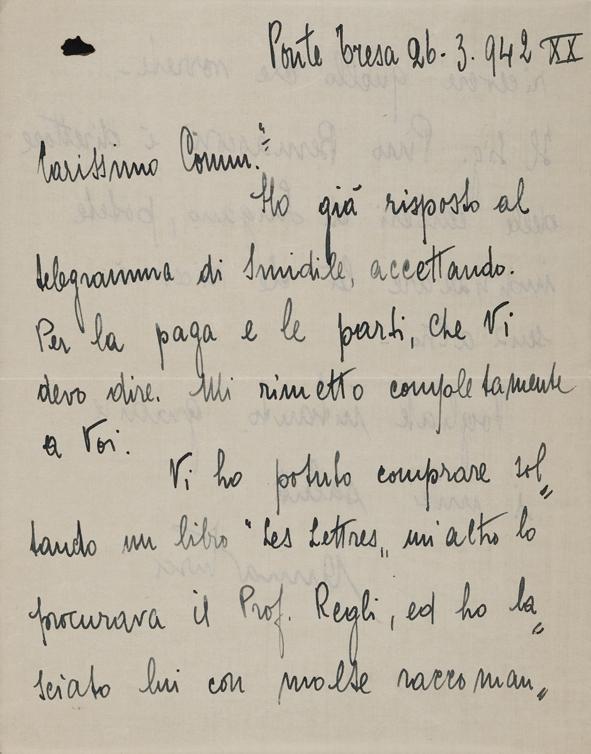 Ponte Tresa 26. 3. 942 XX
Carissimo Comm.
Ho già risposto al
telegramma di Smidile, accettando.
Per la paga e le parti, che Vi
devo dire. Mi rimetto completamente
a Voi.
Vi ho potuto comprare sol„
tando un libro "Les Lettres„ un'altro lo
procurava il Prof. Regli, ed ho la„
sciato lui con molte raccoman„